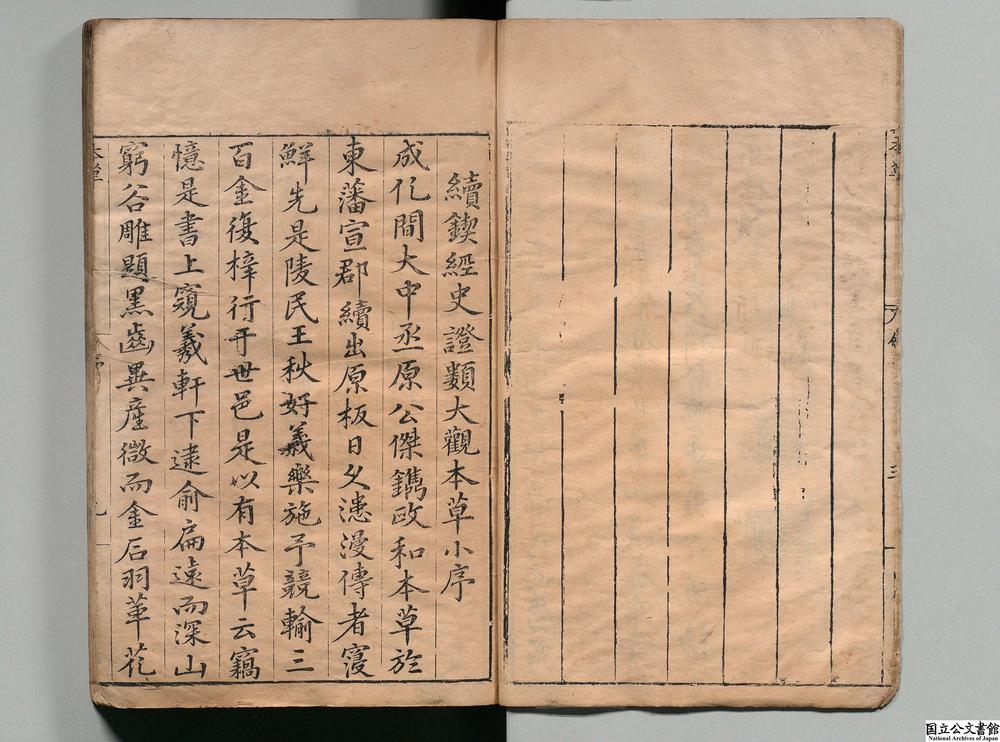 續鍥經史證類大觀本草小序
成化間大中丞原公傑鐫政和本草於
東藩宣郡續出原板日久漶漫傳者寖
鮮先是陵民王秋好義樂施予競輸三
百金復梓行于世邑是以有本草云竊
憶是書上窺羲軒下逮俞扁遠而深山
窮谷雕題黑齒異産微而金石羽革花
国立公文書館
National Archives of Japan